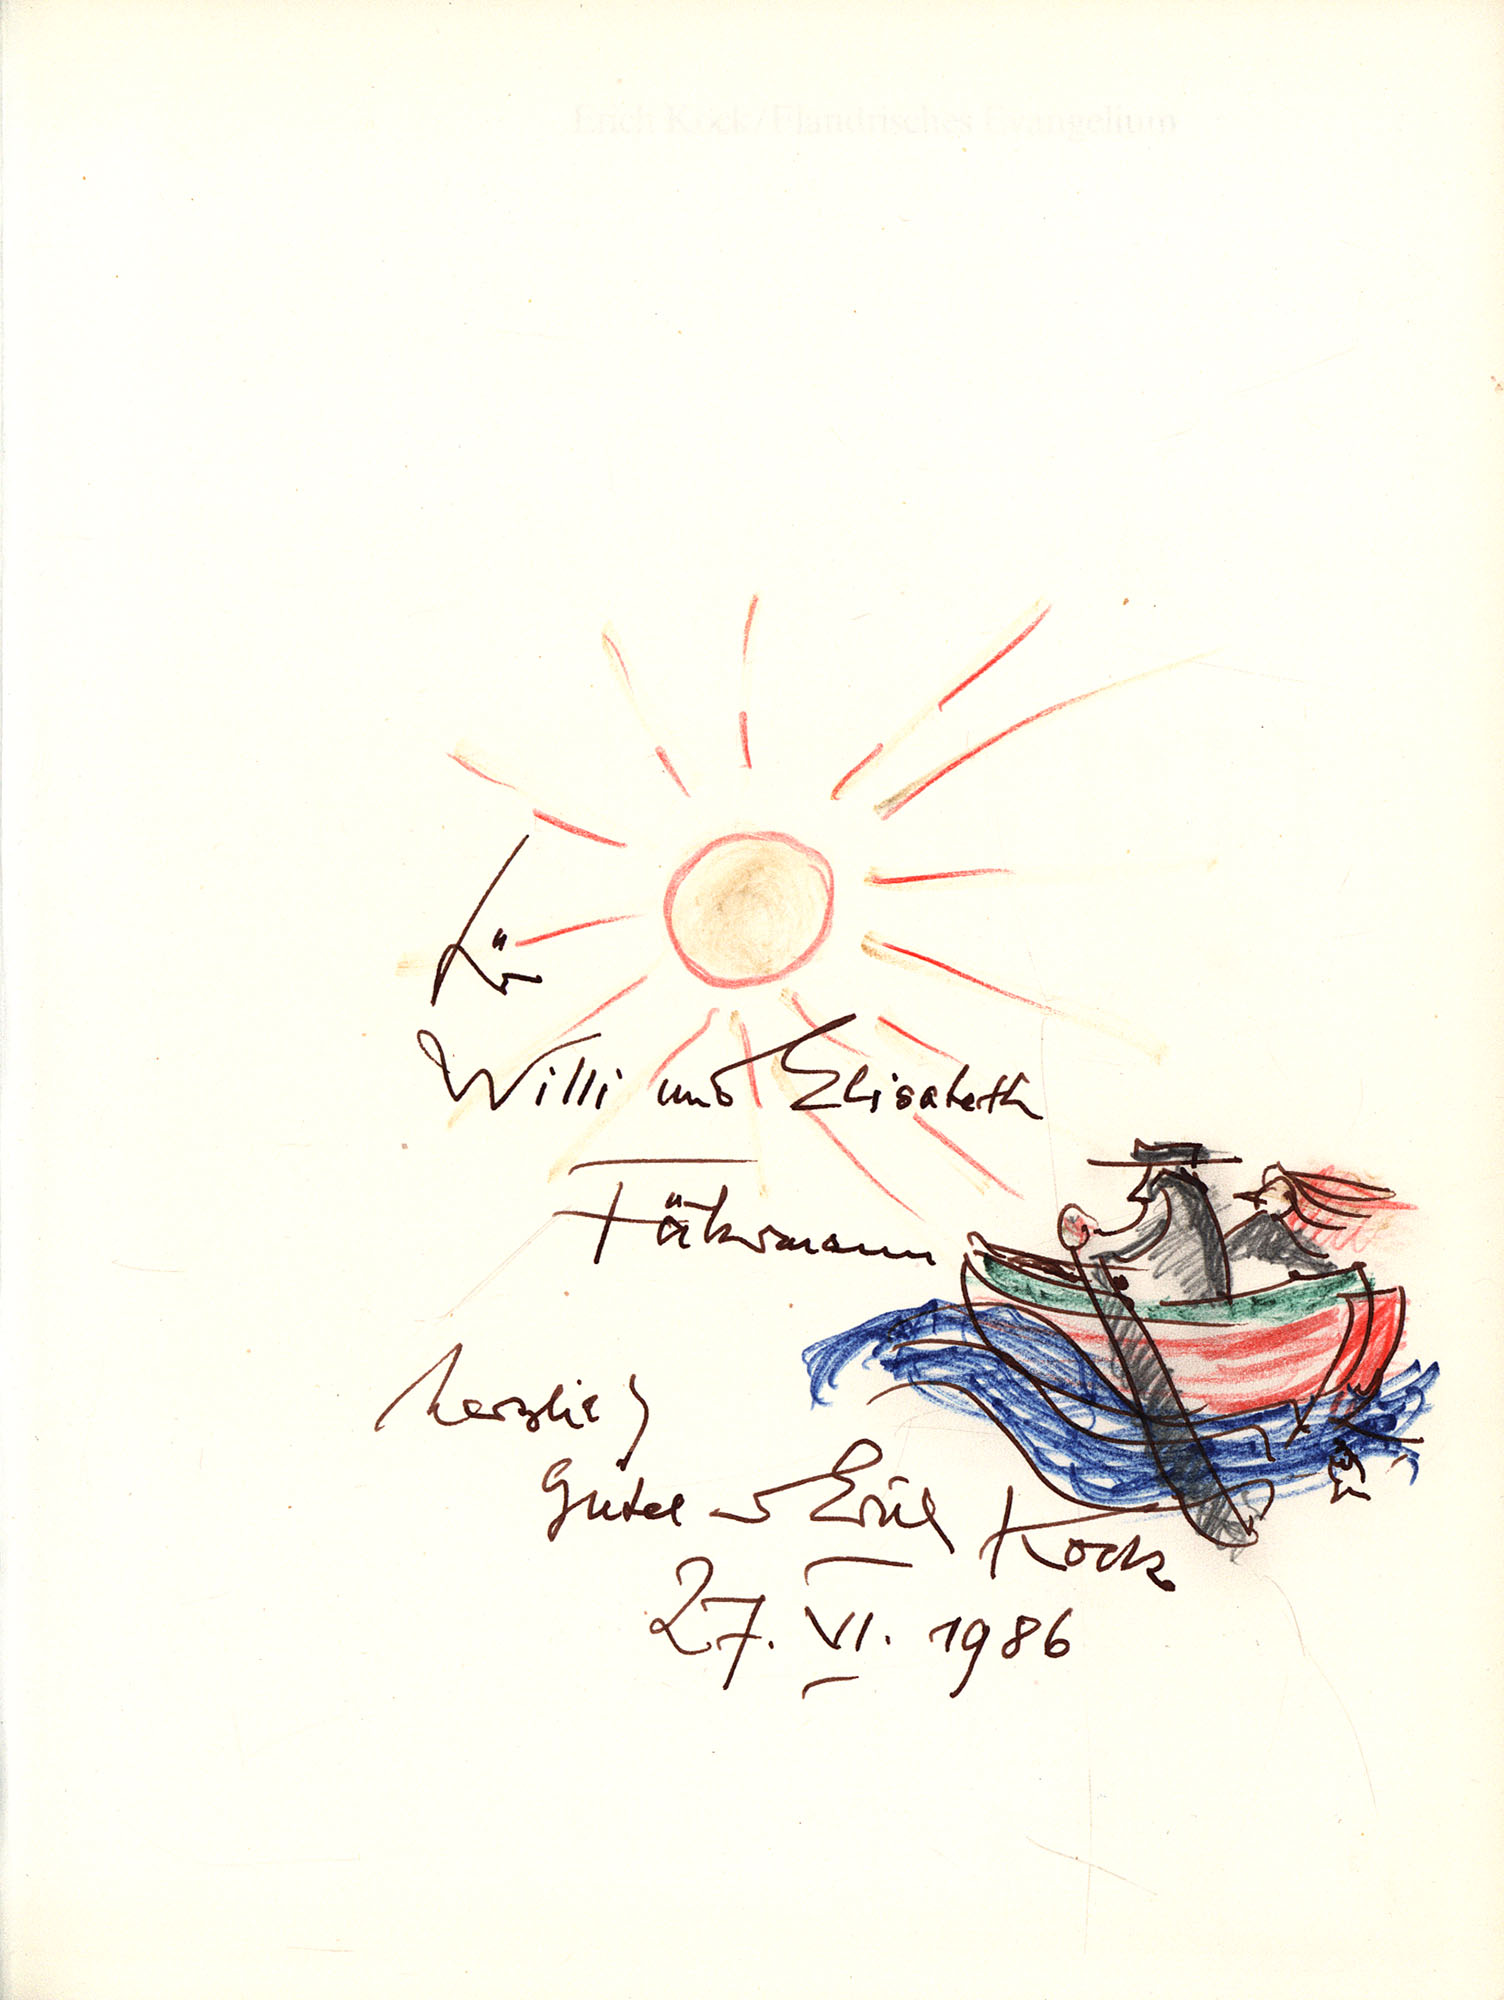 Erich Kock/Flandrisches Evangelium
Für
Willi und Elisabeth
Fährmann
herzlich
Erich Kock
27. VI. 1986